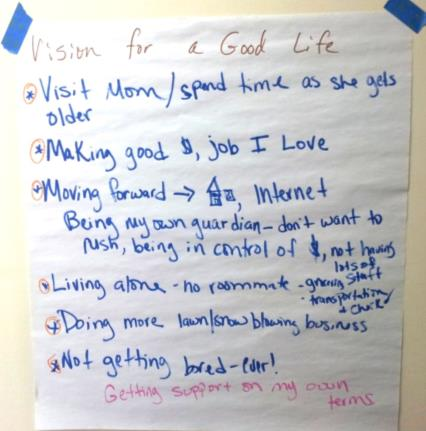 Vision for a Good Life
* Visit Mom/spend time as she gets
older
* Making good $, job I Love
* Moving forward → , Internet
Being my own guardian - don't want to
rush, being in control of $, not having
lots of
staff
* Living alone - no roommate -
- transportation
* Doing more lawn/snow blowing business
* Not getting bored - ever!
Getting support on my own
terms